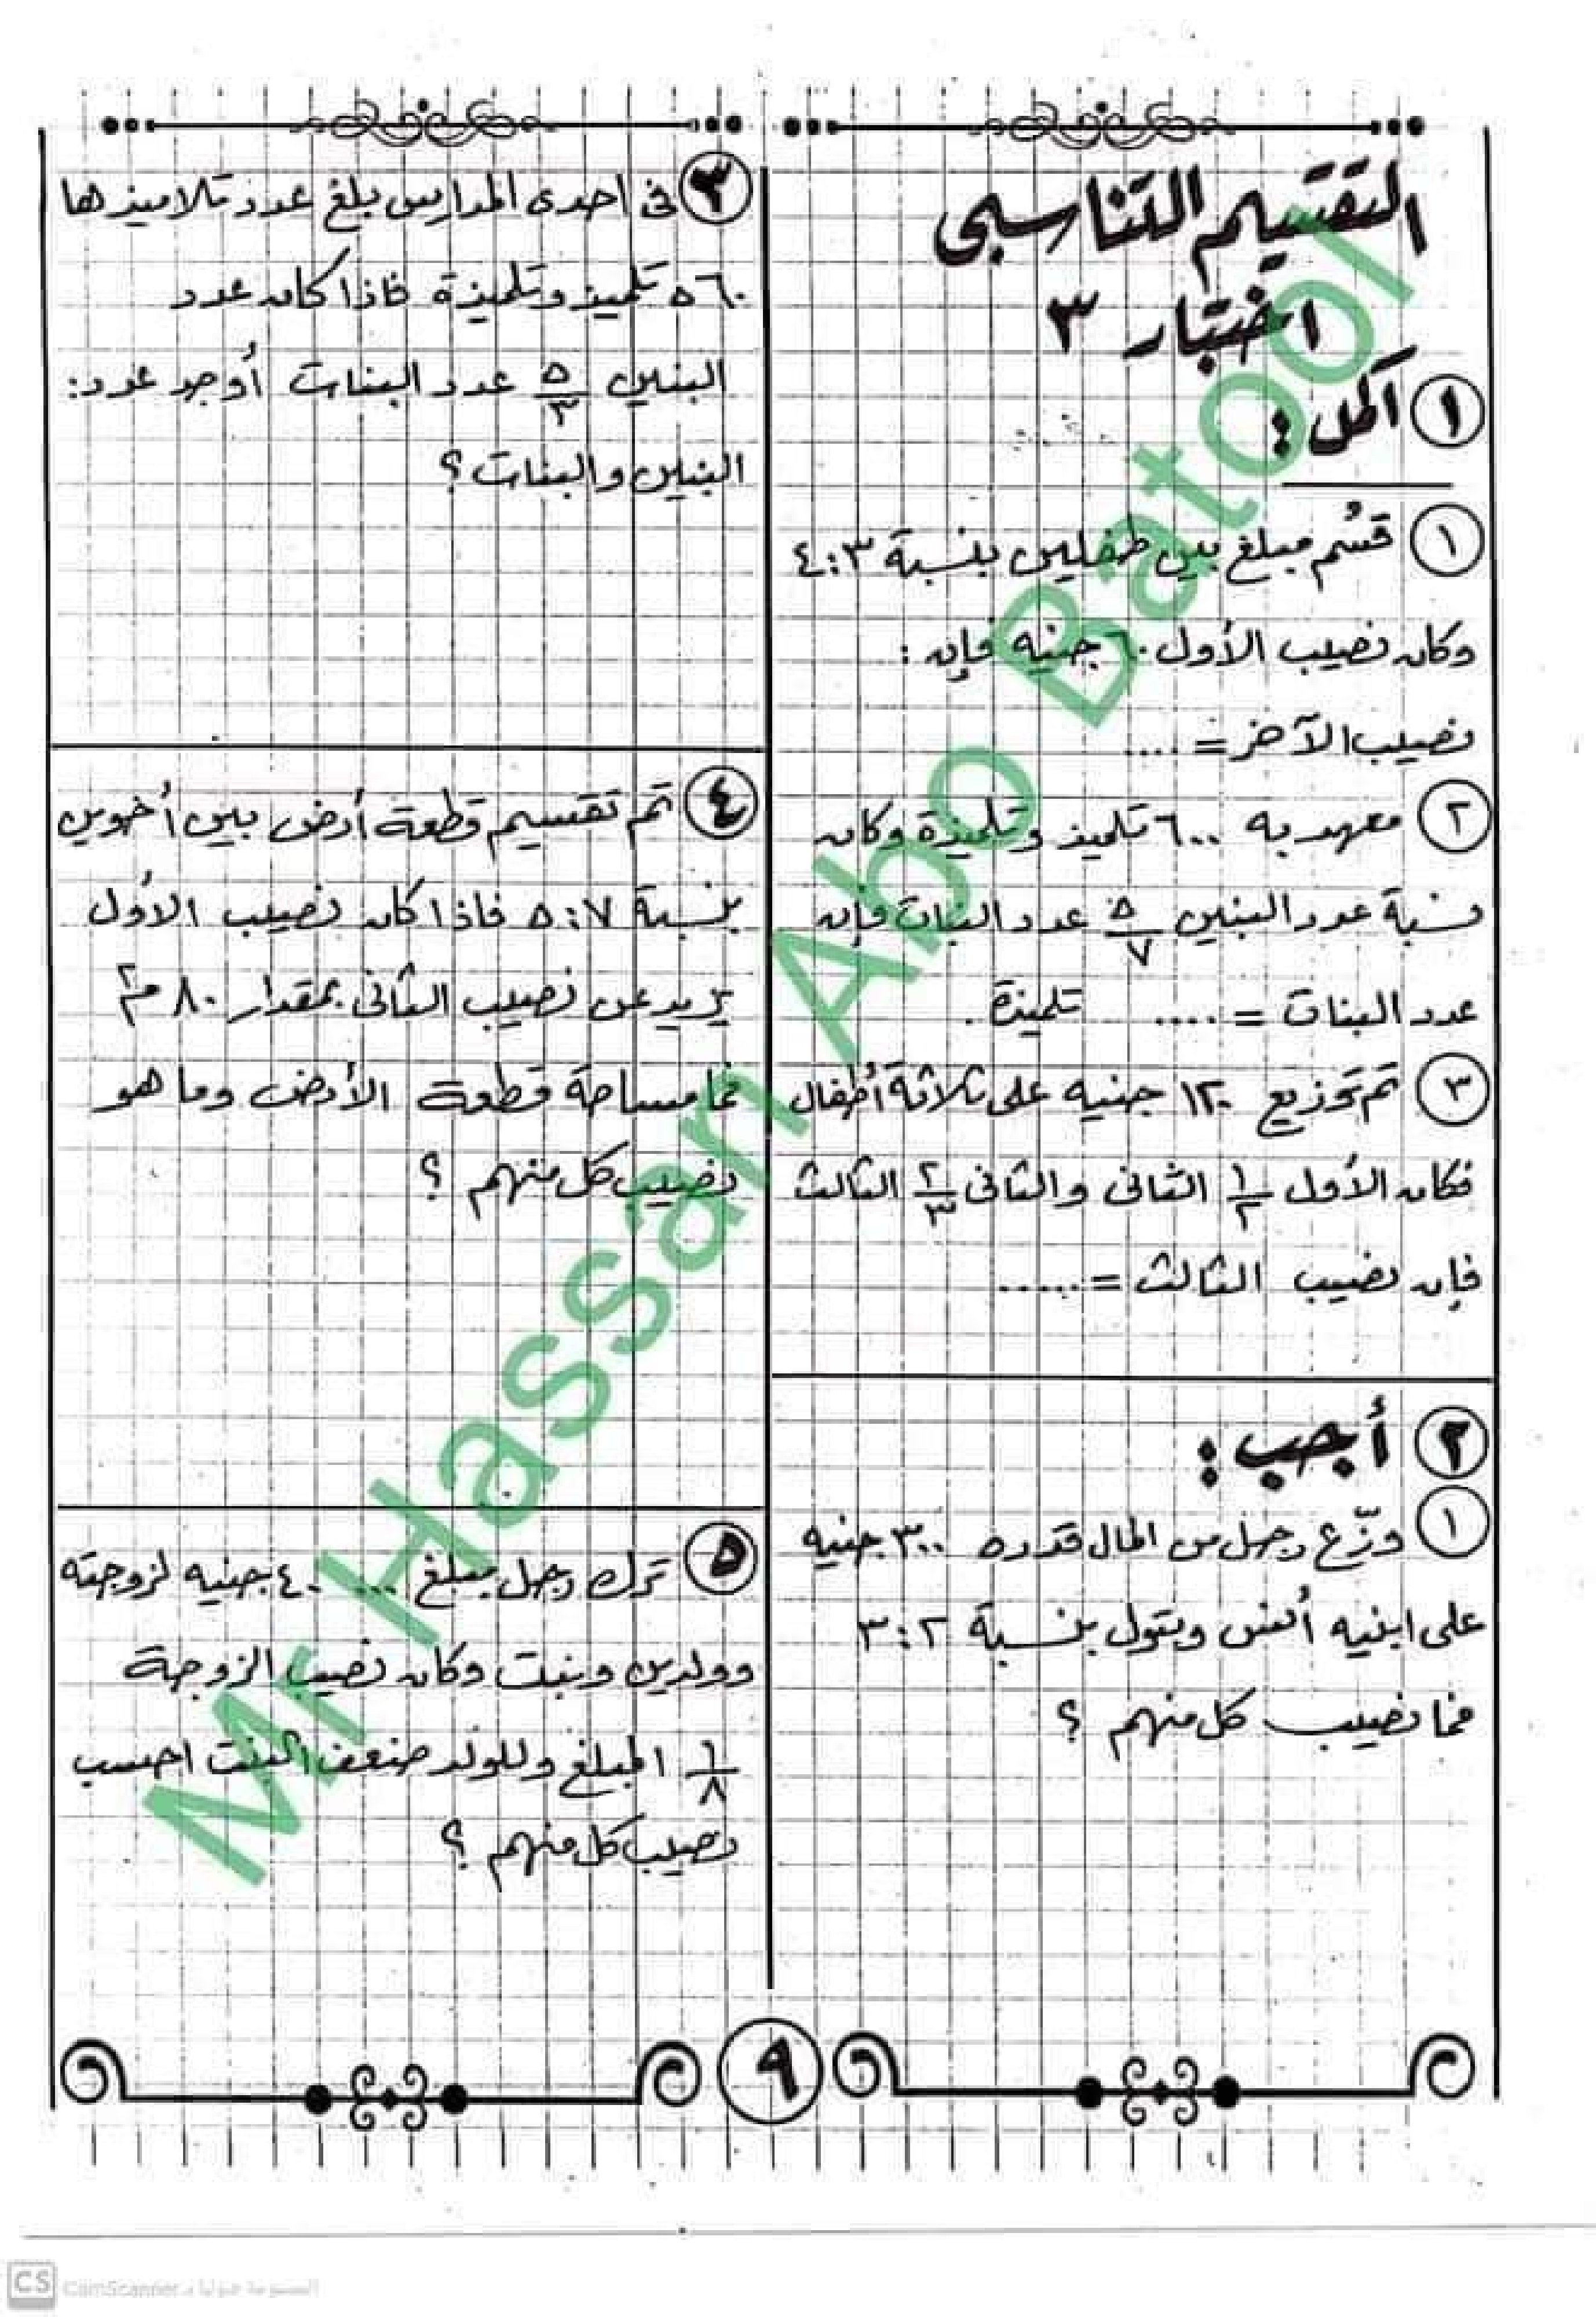 التقسيم التناسبى
اختبار ٣
١ اكمل :
١ قسُم مبلغ بين طفلين بنسبة ٣ : ٤
وكان نصيب الأول ٦٠ جنيه فإن :
نصيب الآخر = ....
٢ معهد به ٦٠٠ تلميذ وتلميذة وكان
نسبة عدد البنين ٥/٧ عدد البنات فإن
عدد البنات = .... تلميذة .
٣ تم توزيع ١٢٠ جنيه على ثلاثة أطفال
فكان الأول ١/٢ الثانى والثانى ٢/٣ الثالث
فإن نصيب الثالث = ......
٢ أجب :
١ وزّع رجل من المال قدره ٣٠٠ جنيه
على ابنيه أنس وبتول بنسبة ٢ : ٣
فما نصيب كل منهم ؟
٣ فى احدى المدارس بلغ عدد تلاميذها
٥٦٠ تلميذ وتلميذة فاذا كان عدد
البنين ٥/٣ عدد البنات أوجد عدد :
البنين والبنات ؟
٤ تم تقسيم قطعة أرض بين أخوين
بنسبة ٧ : ٥ فاذا كان نصيب الأول
يزيد عن نصيب الثانى بمقدار ٨٠ م٢
فما مساحة قطعة الأرض وما هو
نصيب كل منهم ؟
٥ ترك رجل مبلغ ٤٠٠٠٠ جنيه لزوجته
وولدين وبنت وكان نصيب الزوجة
١/٨ المبلغ وللولد ضعف البنت احسب
نصيب كل منهم ؟
٩
Mr Hassan Abo Batool
CS CamScanner الممسوحة ضوئيا بـ